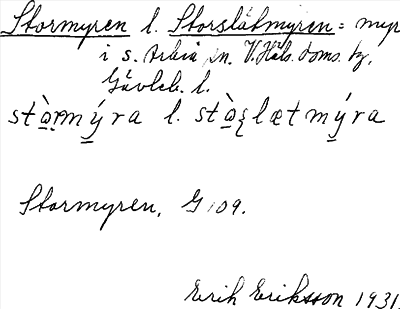 Stormyren l. Storslåtmyren = myr
i s. Arbrå sn. V. Häls. doms. tg.
Gävleb. l.
stò̱rmý̱ra l. stò̱ʂlætmý̱ra
Stormyren, G 109.
Erik Eriksson 1931.